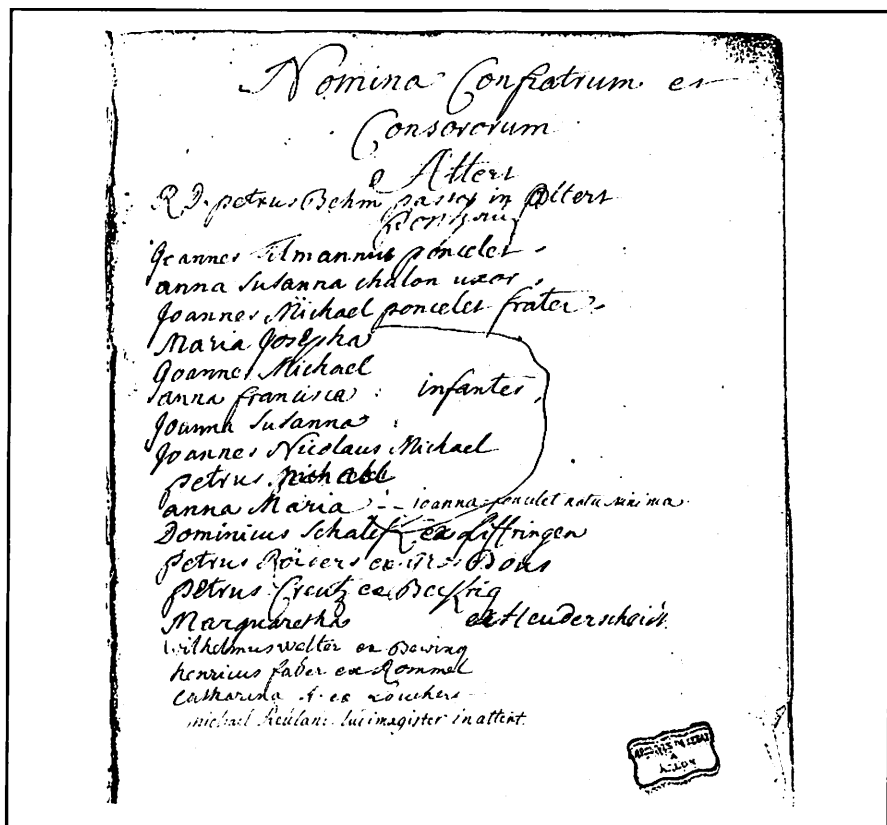 Nomina Confratrum et
Consororum
Attert
R. D. petrus Behm pastor in Attert
Joannes Tilmannus poncelet
anna Susanna chalon uxor
Joannes Michael poncelet frater
Maria Josepha
Joannes Michael
anna francisca : infantes
Joanna Susanna
Joannes Nicolaus Michael
petrus
anna Maria -- ioanna poncelet natu minima
Dominicus ex Liffringen
petrus ex Bous
petrus Creutz ex
Marguaretha ex Heuderscheidt
Wilhelmus welter ex
henricus faber ex Rommel
Catharina ex
michael ludimagister in attert.
ARCHIVES DE L'ETAT
A
ARLON